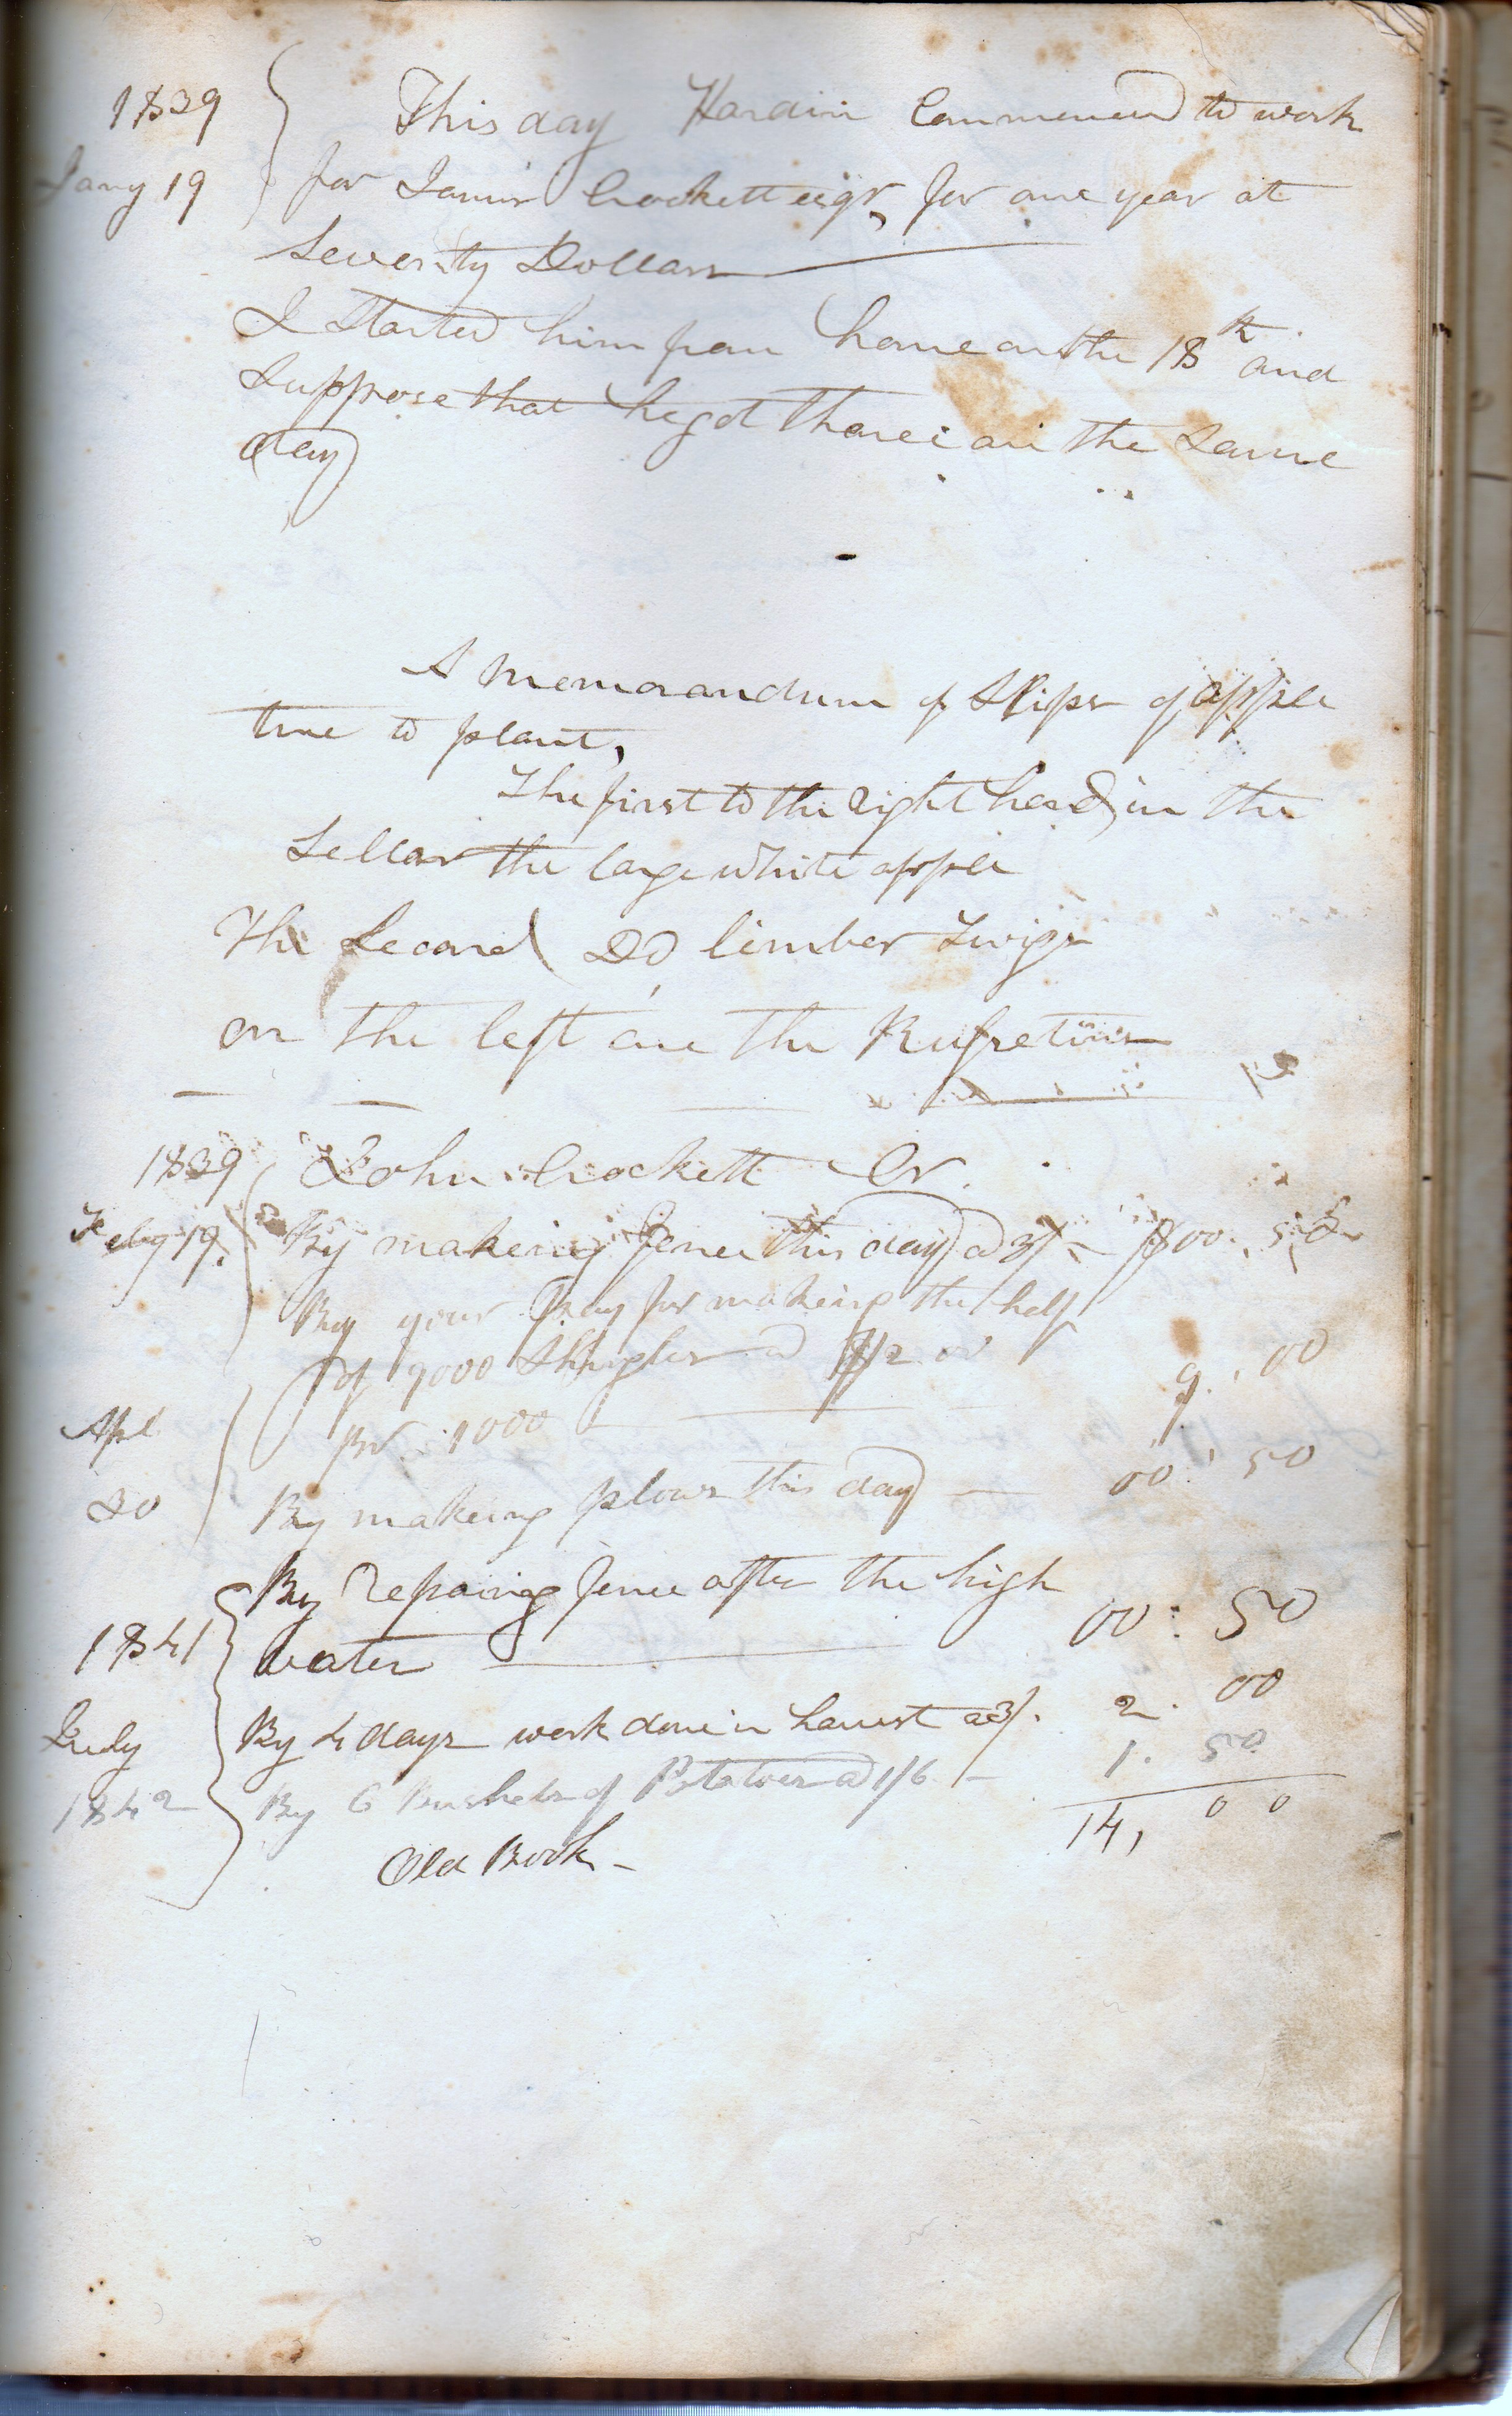 1839 This day Hardin Commenced to work
Jany 19 for Crockett for one year at
Seventy Dollars
I Started him from home on the 18th and
Suppose that he got there on the Same
day
A memorandum of Slips of apple
tree to plant,
The first to the right hand in the
Sellar the large white apple
The Second DO limber Twigs
on the left are the
1839 John Crockett Cr.
Feby 19. By makeing fence this day a 3/ $00. 50
By your pay for makeing the half
of 9000 Shingles a
pr. 1000 9. 00
Apl
20 By makeing plows this day 00: 50
By repairing fence after the high
1841 water 00: 50
July By 4 days work done in harvest a 3/. 2. 00
1842 By 6 bushels of Potatoes a 1/6 1. 50
14, 00
Old Book